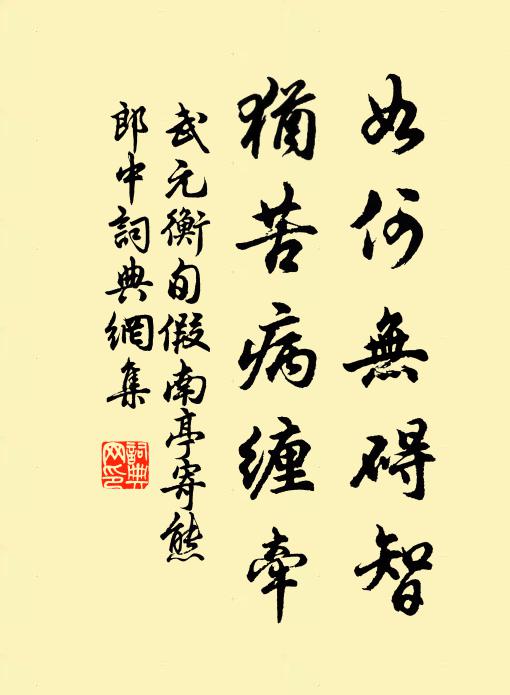 如何無碍智
猶苦病纏牽
武元衡旬假南亭寄熊
郎中詞典網集
詞典网印